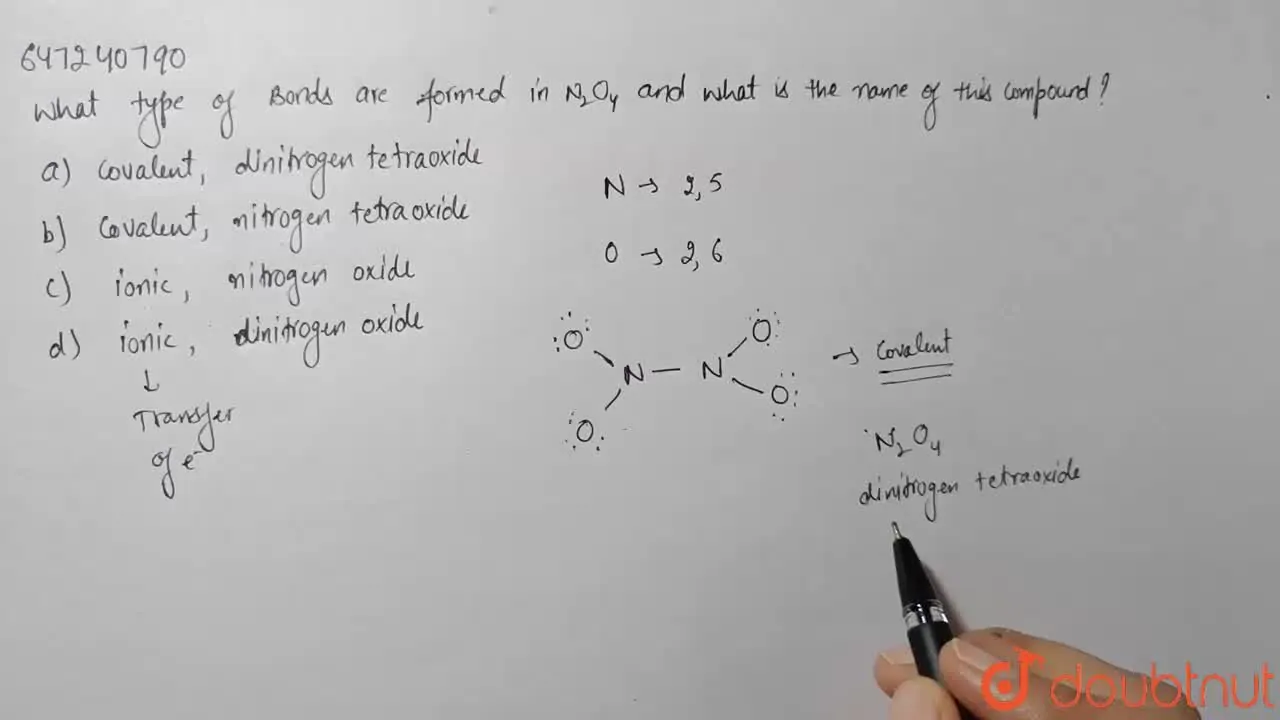 647240790
What type of Bonds are formed in N₂O₄ and what is the name of this compound?
a) Covalent, dinitrogen tetraoxide
b) Covalent, nitrogen tetraoxide
c) ionic, nitrogen oxide
d) ionic, dinitrogen oxide
↓
Transfer
of e⁻
N → 2,5
O → 2,6
O O
N — N
O O
→ Covalent
N₂O₄
dinitrogen tetraoxide
doubtnut